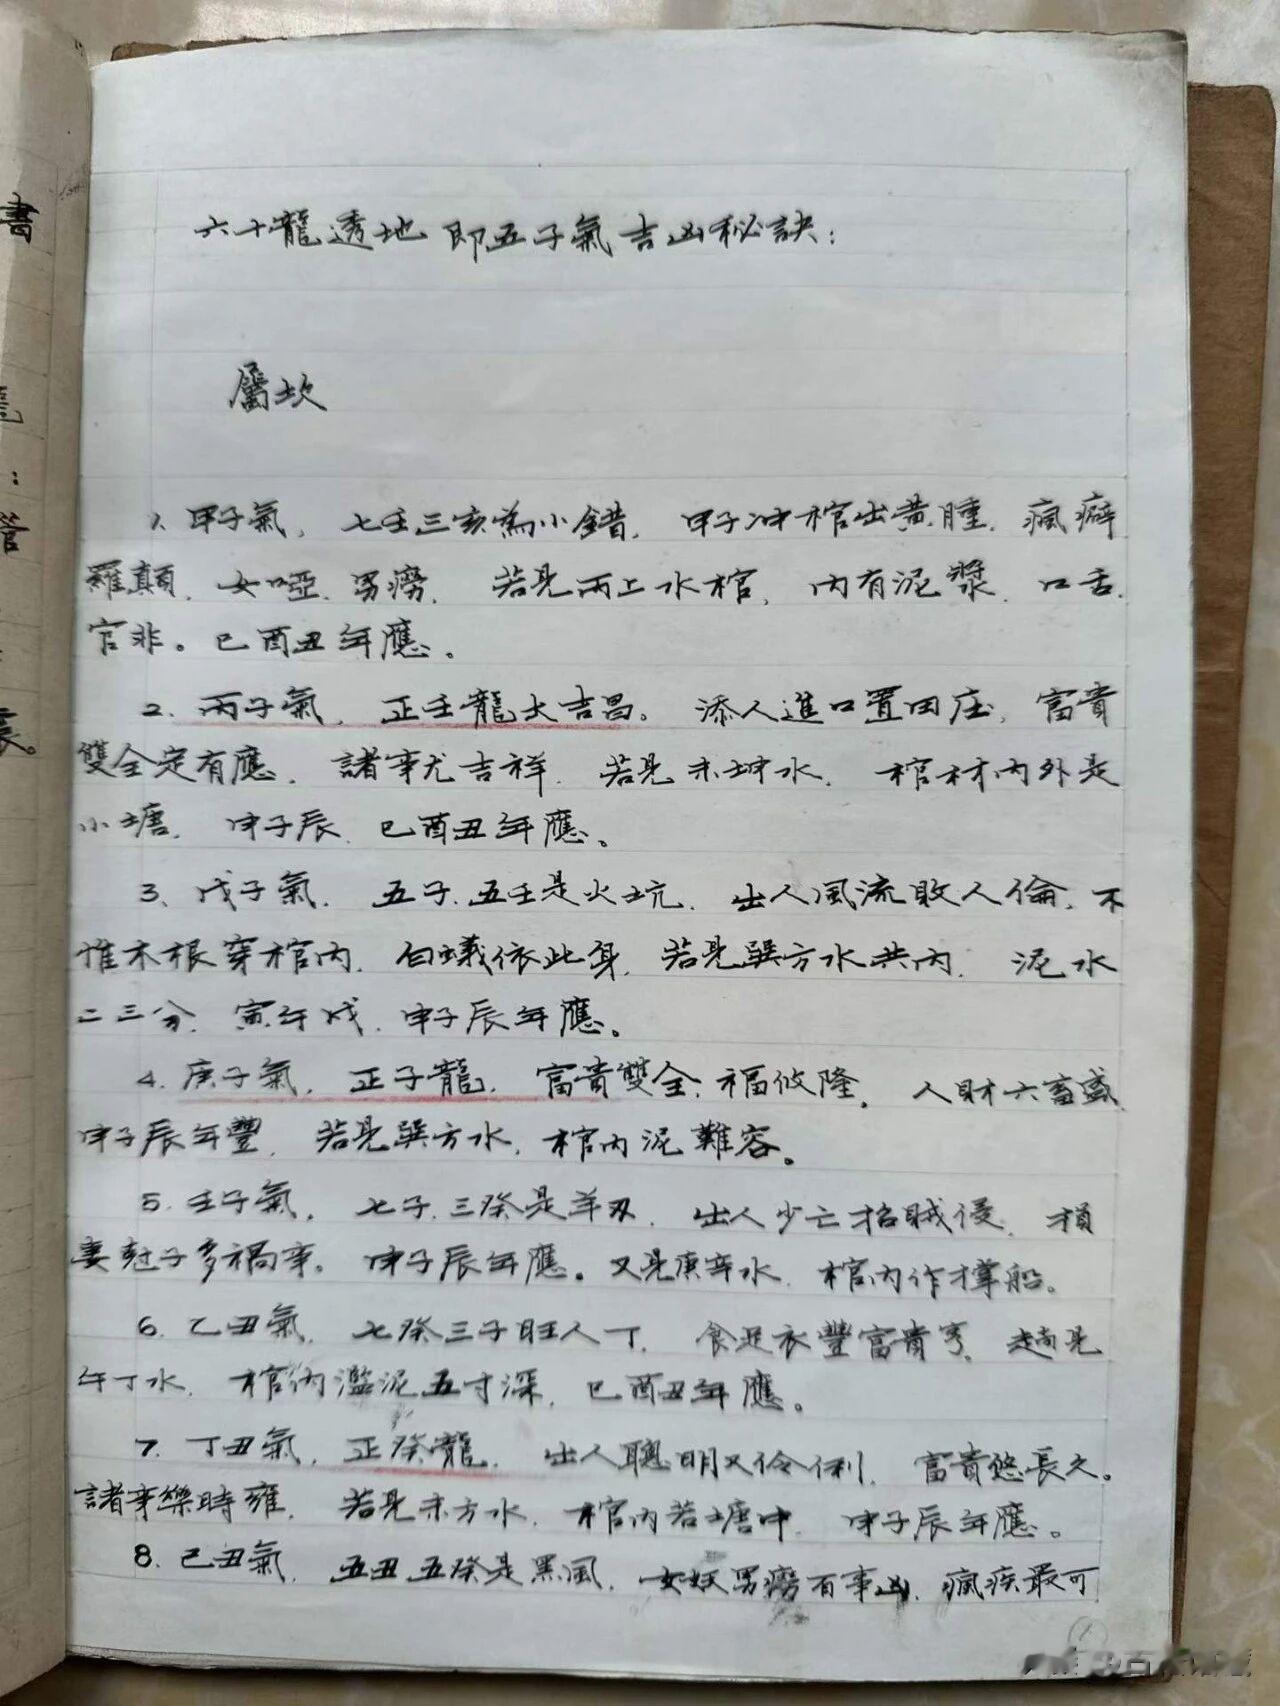 書
六十龍透地即五子氣吉凶秘訣：
屬坎
1. 甲子氣，七壬三亥為小錯，甲子冲棺出黄腫，瘋癬
羅顛，女啞，男癆，若見丙上水棺，内有泥漿，口舌
官非。巳酉丑年應。
2. 丙子氣，正壬龍大吉昌。添人進口置田庄，富貴
雙全定有應，諸事尤吉祥，若見未坤水，棺材内外是
小塘，申子辰，巳酉丑年應。
3、戊子氣，五子，五壬是火坑，出人風流敗人倫，不
惟木根穿棺内，白蟻依此身，若見巽方水共内，泥水
二三分，寅午戌，申子辰年應。
4. 庚子氣，正子龍，富貴雙全，福攸隆，人財六畜盛，
申子辰年豐，若見巽方水，棺内泥難容。
5. 壬子氣，七子，三癸是羊刃，出人少亡招賊侵，損
妻尅子多禍事。申子辰年應。又見庚辛水，棺内作撑船。
6. 乙丑氣，七癸三子旺人丁，食足衣豐富貴亨，趟見
午丁水，棺内濫泥五寸深，巳酉丑年應。
7. 丁丑氣，正癸龍，出人聰明又伶俐，富貴悠長久。
諸事樂時雍，若見未方水，棺内若塘中，申子辰年應。
8. 己丑氣，五丑五癸是黑風，女妖男癆百事凶，瘋疾最可